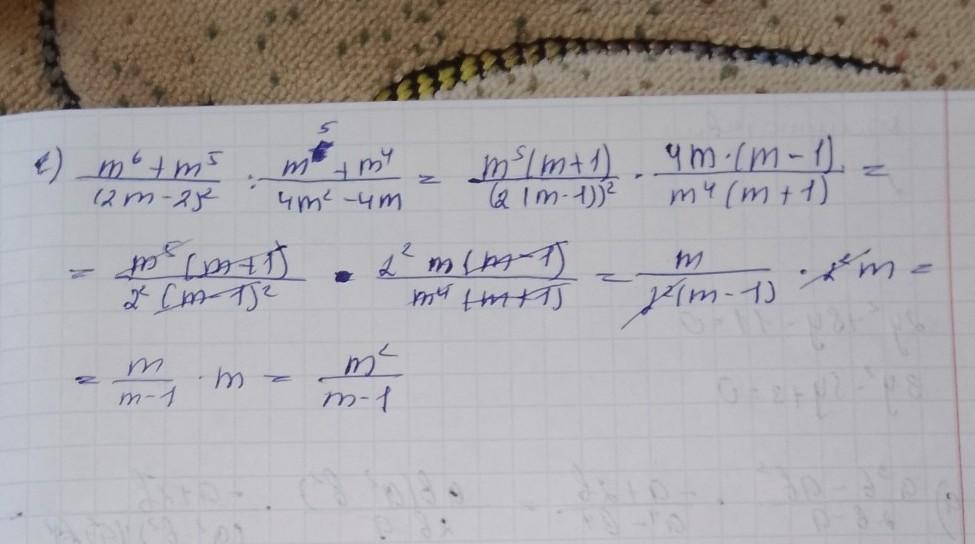 е) (m⁶ + m⁵)/(2m - 2)² : (m⁵ + m⁴)/(4m² - 4m) = m⁵(m+1)/(2(m-1))² · 4m·(m-1)/m⁴(m+1) =
= m⁵(m+1)/2²(m-1)² · 2²m(m-1)/m⁴(m+1) = m/2²(m-1) · 2²m =
= m/(m-1) · m = m²/(m-1)